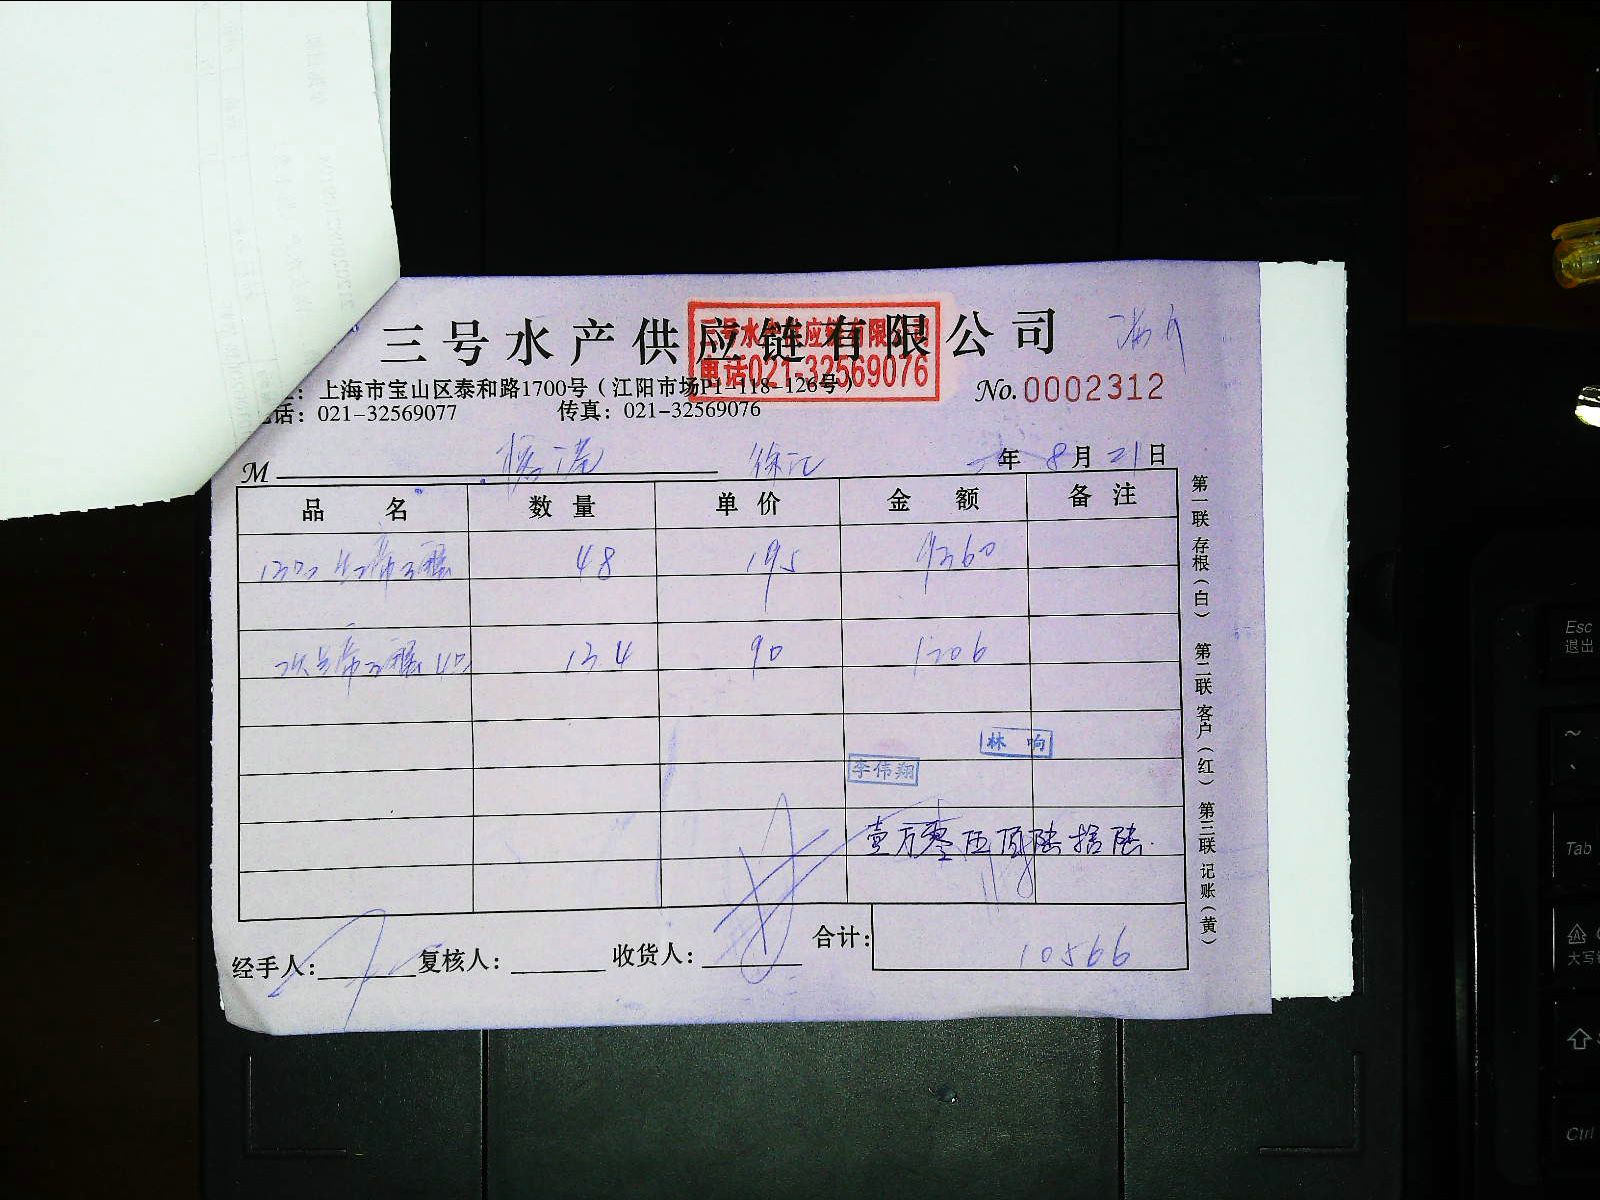 三号水产供应链有限公司
三号水产供应链有限公司
电话021-32569076
：上海市宝山区泰和路1700号（江阳市场P1-118-126号）
No.0002312
话：021-32569077 传真：021-32569076
M 徐汇 年 8月21日
品名 数量 单价 金额 备注
48 195 9360
13.4 90 1206
林响
李伟翔
壹万零伍佰陆拾陆
合计：10566
经手人： 复核人： 收货人：
第一联存根（白） 第二联客户（红） 第三联记账（黄）
Esc
退出
~
Tab
Ctrl